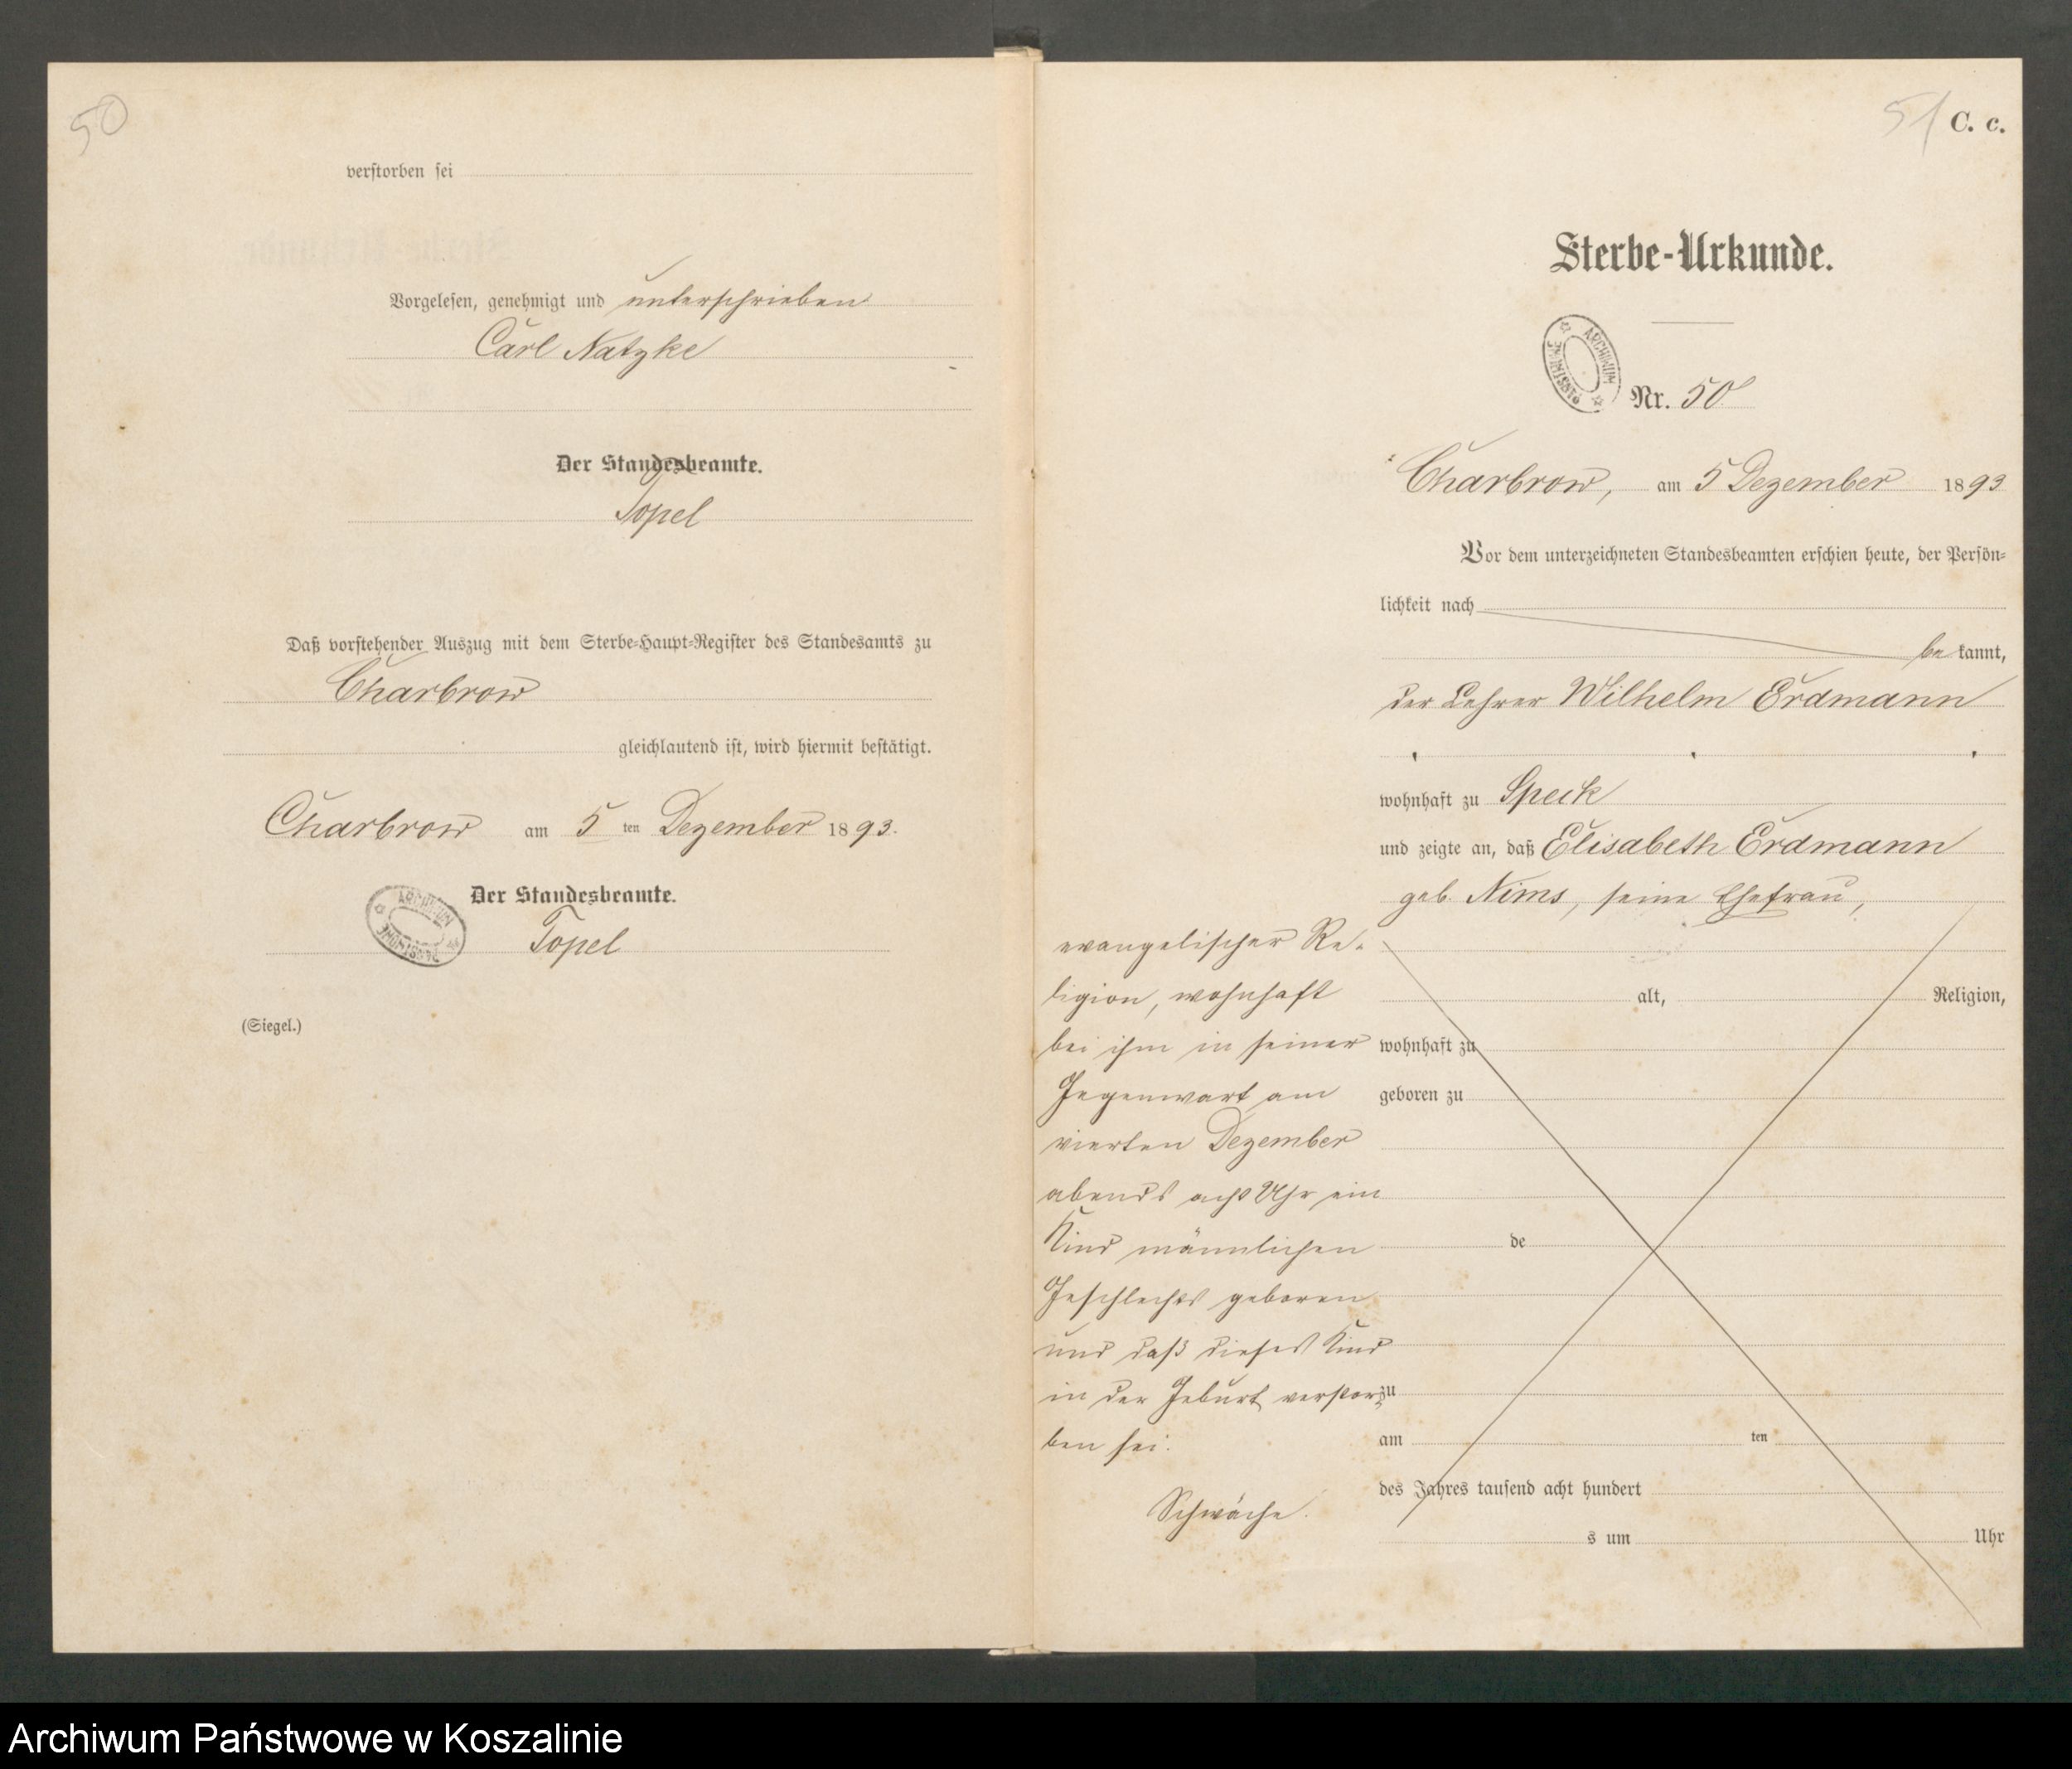 50
verstorben sei
Vorgelesen, genehmigt und unterschrieben
Carl Natzke
Der Standesbeamte.
Topel
Daß vorstehender Auszug mit dem Sterbe-Haupt-Register des Standesamts zu
Charbrow
gleichlautend ist, wird hiermit bestätigt.
Charbrow am 5 ten Dezember 1893.
Der Standesbeamte.
ARCHIWUM
Topel
(Siegel.)
51 C. c.
Sterbe-Urkunde.
ARCHIWUM
Nr. 50
Charbrow, am 5 Dezember 1893
Vor dem unterzeichneten Standesbeamten erschien heute, der Persön-
lichkeit nach
be kannt,
der Lehrer Wilhelm Erdmann
wohnhaft zu Speck
und zeigte an, daß Elisabeth Erdmann
geb. Nims, seine Ehefrau,
evangelischer Re-
ligion, wohnhaft
bei ihm in seiner
Gegenwart am
vierten Dezember
abends acht Uhr ein
Kind männlichen
Geschlechts geboren
und daß dieses Kind
in der Geburt verstor-
ben sei.
Schwäche.
alt, Religion,
wohnhaft zu
geboren zu
de
zu
am ten
des Jahres tausend acht hundert
s um Uhr
Archiwum Państwowe w Koszalinie